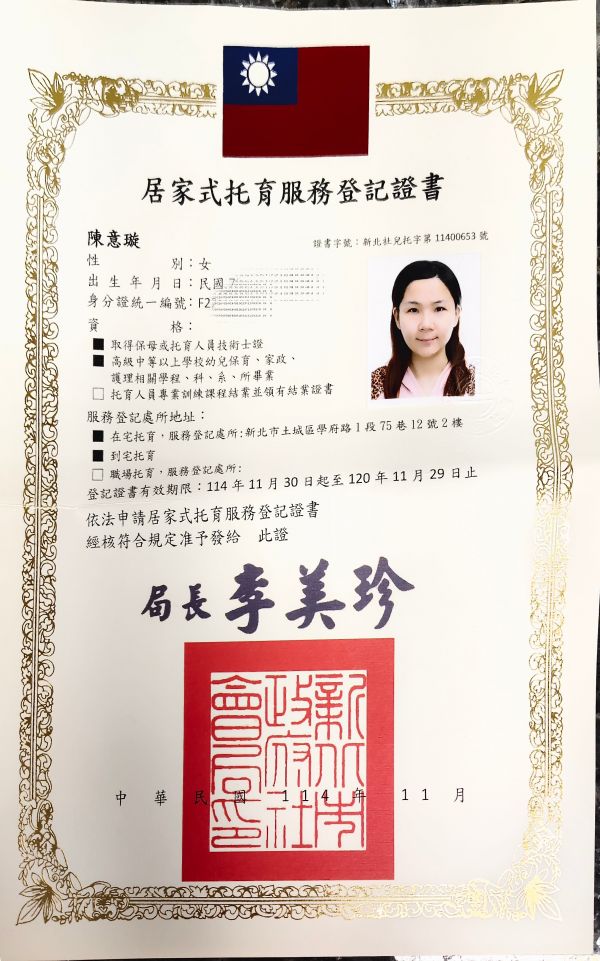 居家式托育服務登記證書
陳意璇
證書字號：新北社兒托字第11400653號
性別：女
出生年月日：民國7
身分證統一編號：F2
資格：
■取得保母或托育人員技術士證
■高級中等以上學校幼兒保育、家政、
護理相關學程、科、系、所畢業
□托育人員專業訓練課程結業並領有結業證書
服務登記處所地址：
■在宅托育，服務登記處所:新北市土城區學府路1段75巷12號2樓
■到宅托育
□職場托育，服務登記處所:
登記證書有效期限：114年11月30日起至120年11月29日止
依法申請居家式托育服務登記證書
經核符合規定准予發給 此證
局長 李美珍
新北市政府社會局印
中華民國114年11月